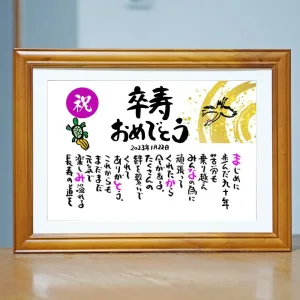 祝
卒寿
おめでとう
2023年1月22日
まじめに
生んだ九十年
苦労も
乗り越え
みなの為に
頑張って
くれたから
今がある
たくさんの
絆を築いて
くれて
ありがとう
これからも
まだまだ
元気で
楽しみ溢れる
長寿の道を